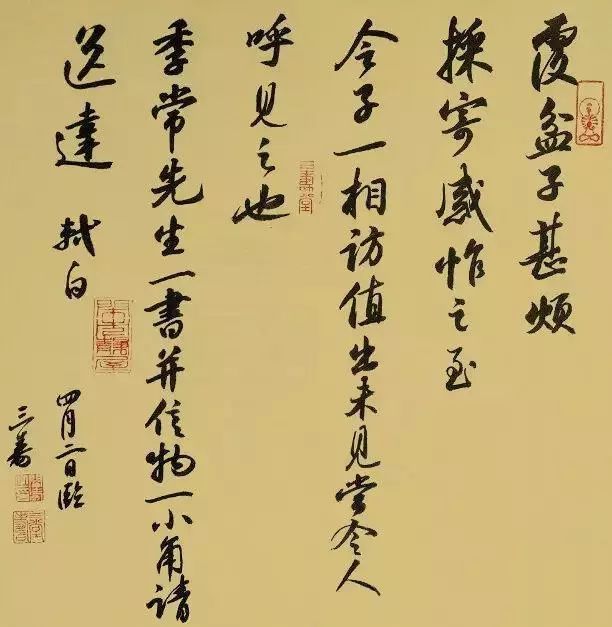 覆盆子甚烦
采寄感怍之至
令子一相访值出未见当令人
呼见之也
季常先生一書并信物一小角請
送達 軾白
四月二日臨
三養